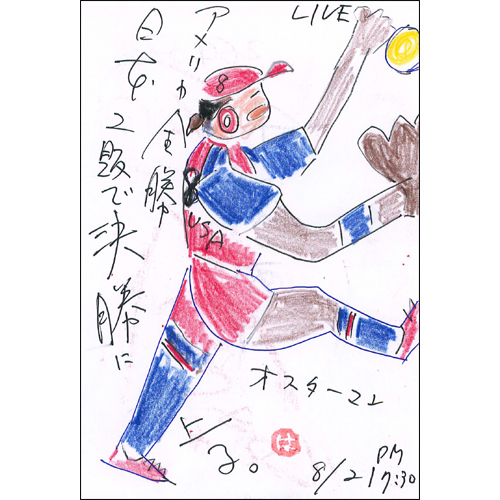 LIVE
アメリカ全勝
日本2敗で決勝に
上る。
8
USA
オスターマン
は
8/21
PM
7:30